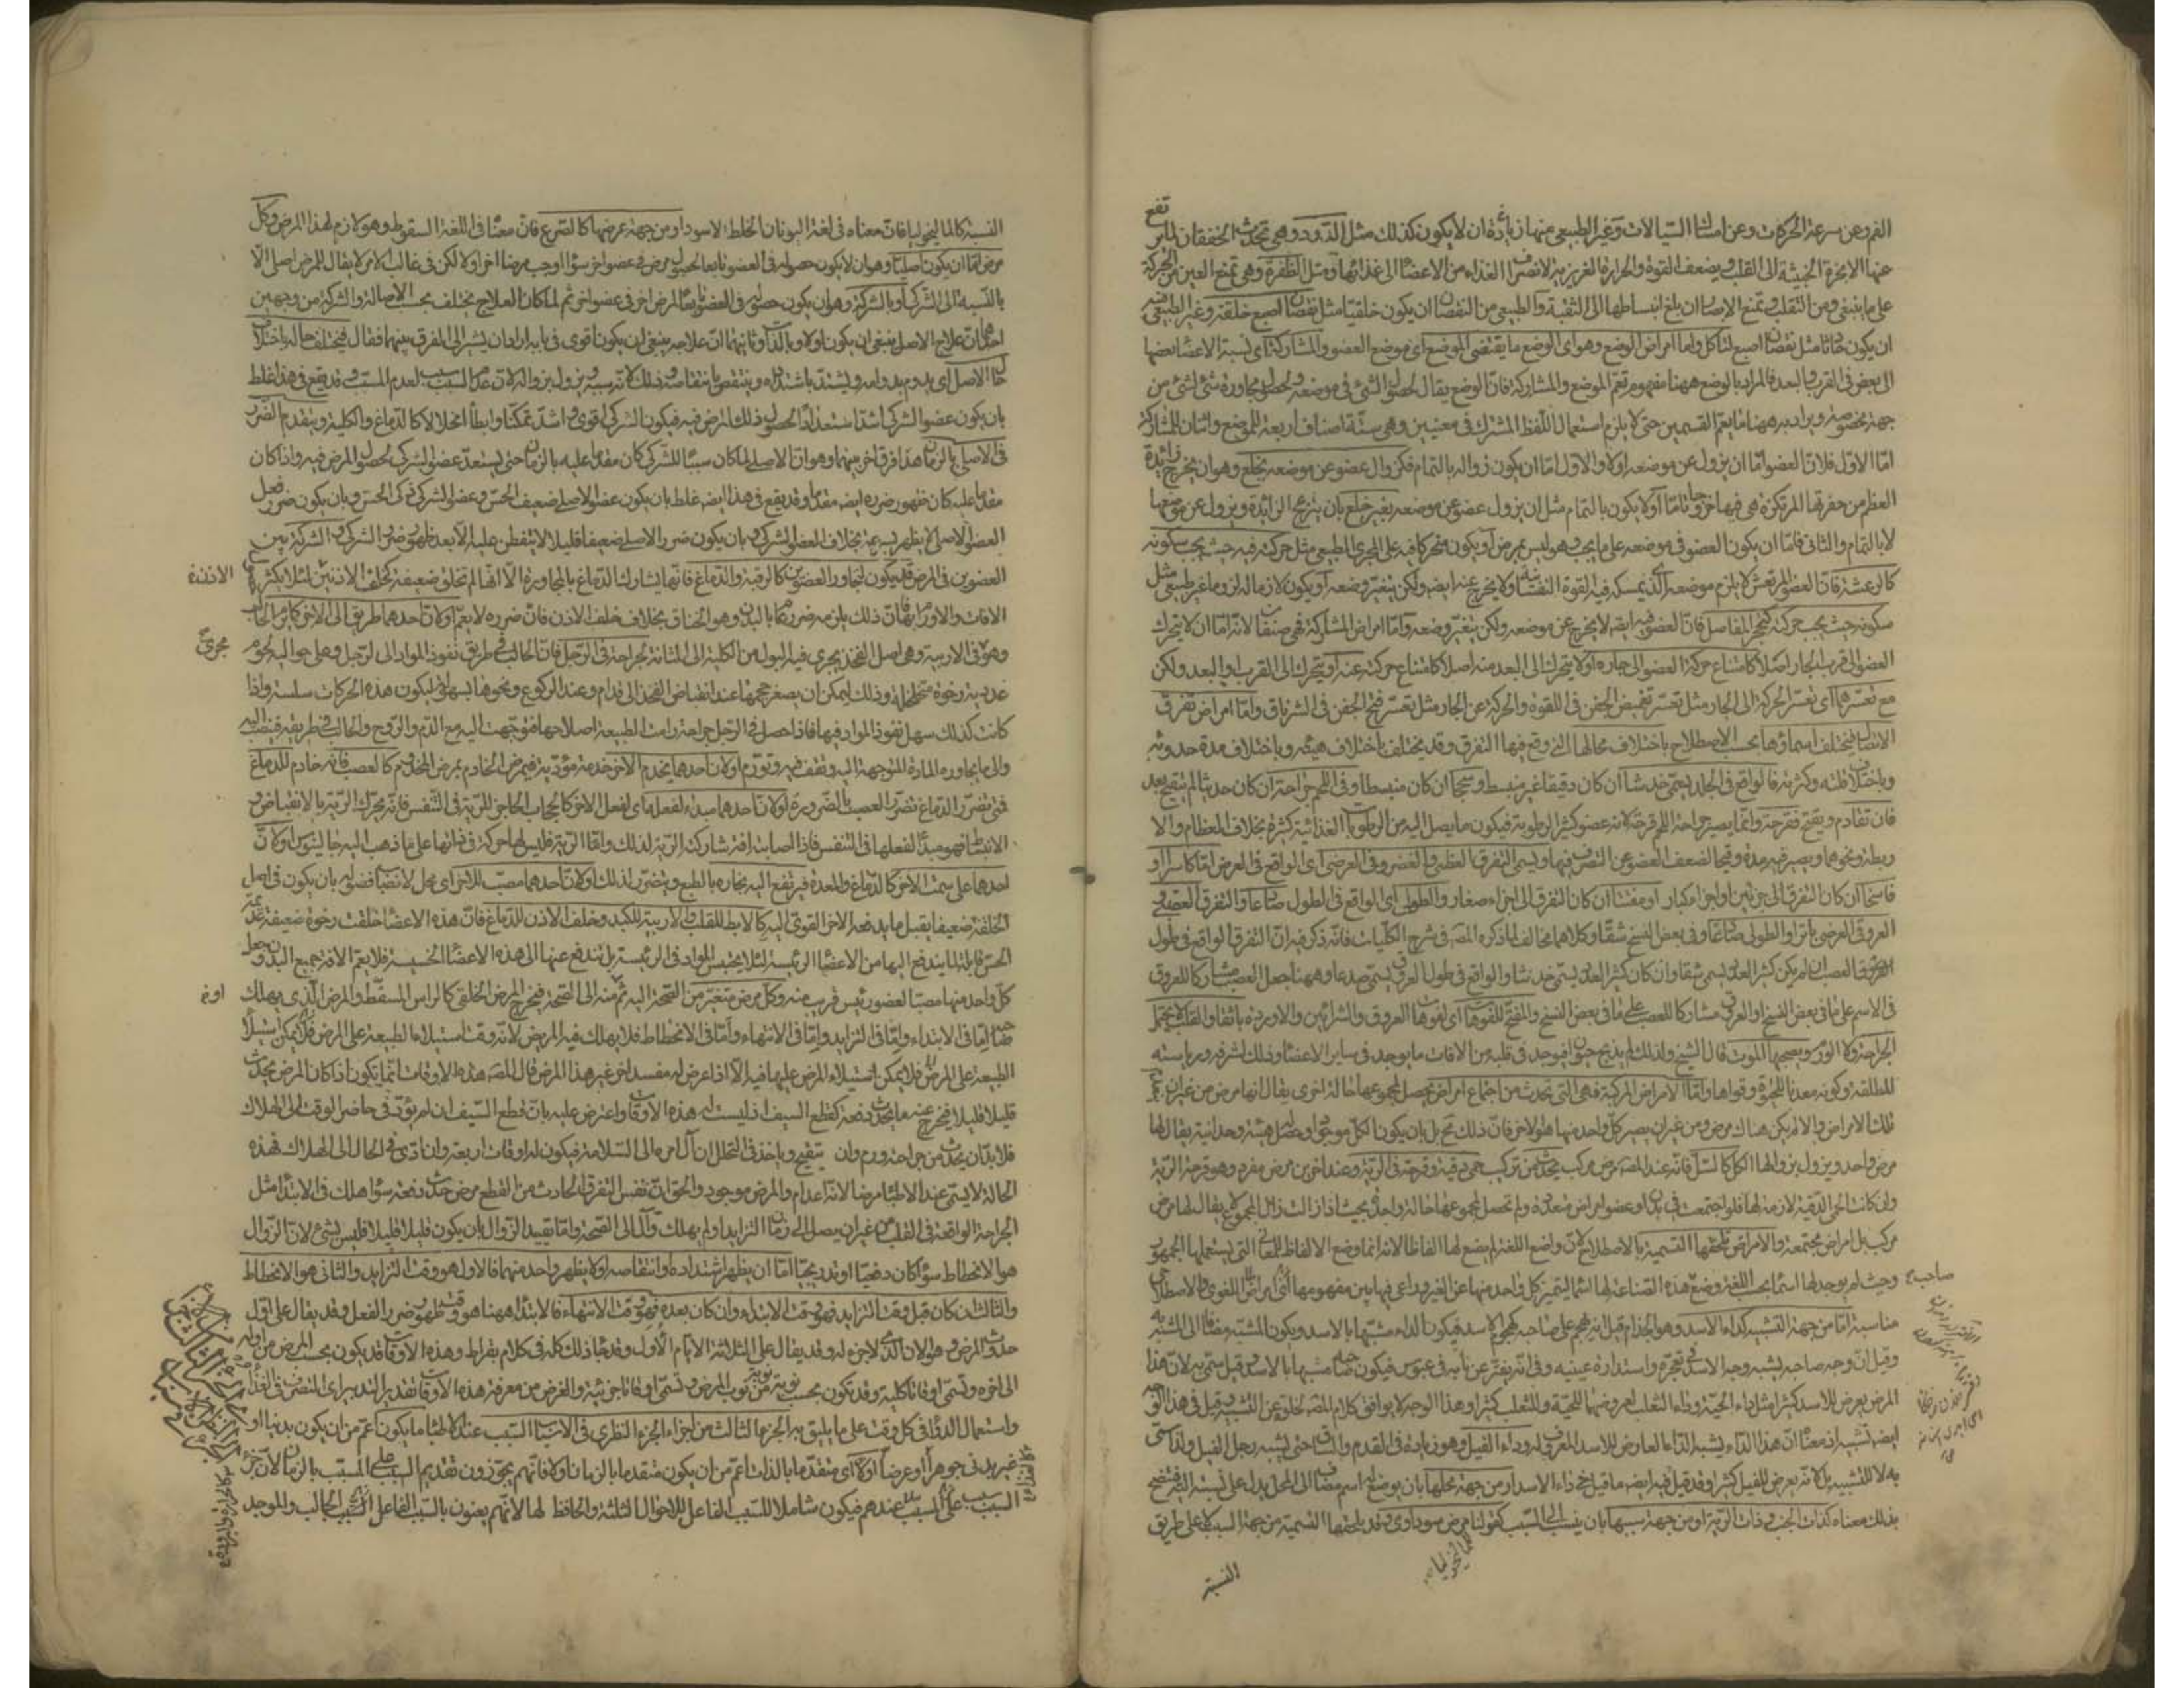 الفم وعن سرعة الحركات وعن امساك السيالات وغير الطبيعي منها زيادة ان لا يكون كذلك مثل الدود وهي تحدث الخفقان لما ترتفع
عنها الابخرة الخبيثة الى القلب ويضعف القوة والحرارة الغريزية لانصراف الغذاء من الاعضاء الى غذائها ومثل الظفرة وهي تمنع العين من الحركة
على ما ينبغي ومن التقلب وتمنع الابصار ان بلغ انبساطها الى الثقبة والطبيعي من النقصان ان يكون خلقيا مثل نقصان اصبع خلقة وغير الطبيعي منه
ان يكون حادثا مثل نقصان اصبع لتاكل واما امراض الوضع وهو اى الوضع ما يقتضى الموضع اى موضع العضو والمشاركة اى نسبة الاعضاء بعضها
الى بعض في القرب والبعد فالمراد بالوضع ههنا مفهوم تعم الموضع والمشاركة فان الوضع يقال لحصول الشئ في موضعه ولحصول مجاورة شئ لشئ من
جهة مخصوصة ويراد به ههنا ما يعم القسمين حتى لا يلزم استعمال اللفظ المشترك في معنيين وهي ستة اصناف اربعة للموضع واثنان للمشاركة
اما الاول فلان العضو اما ان يزول عن موضعه اولا والاول اما ان يكون زواله بالتمام فكزوال عضو عن موضعه بخلع وهو ان يخرج زائدة
العظم من حفرتها المرتكزة هي فيها خروجا تاما أو لا يكون بالتمام مثل ان يزول عضو عن موضعه بغير خلع بان ينزعج الزايدة ويزول عن موضعها
لا بالتمام والثاني فاما ان يكون العضو في موضعه على ما يجب وهو ليس بمرض أو يكون متحركا فيه على المجرى الطبيعي مثل حركته فيه حيث يجب سكونه
كالرعشة فان العضو المرتعش لا يلزم موضعه الذى يمسكه فيه القوة النفسانية ولا يخرج عنه ايضا ولكن يتغير وضعه أو يكون لازما له لزوما غير طبيعي مثل
سكونه حيث يجب حركته كتحجر المفاصل فان العضو فيه ايضا لا يخرج عن موضعه ولكن يتغير وضعه واما امراض المشاركة فهي صنفان لانه اما ان لا يتحرك
العضو الى قرب الجار اصلا كامتناع حركة العضو الى جاره أو لا يتحرك الى البعد منه اصلا كامتناع حركته عنه أو يتحرك الى القرب او البعد ولكن
مع تعسرها اى تعسر الحركة الى الجار مثل تعسر تغميض الجفن في اللقوة والحركة عن الجار مثل تعسر فتح الجفن في الشرناق واما امراض تفرق
الاتصال فيختلف اسماؤها بحسب الاصطلاح باختلاف محالها التي وقع فيها التفرق وقد يختلف باختلاف هيئته وباختلاف مدة حدوثه
وباختلاف قلته وكثرته فالواقع في الجلد يسمى خدشا ان كان دقيقا غير منبسط وسحجا ان كان منبسطا وفي اللحم جراحة ان كان حديثا لم يتقيح بعد
فان تقادم ويقيح فقرحة وانما يصير جراحة اللحم قرحة لانه عضو كثير الرطوبة فيكون ما يصل اليه من الرطوبات الغذائية كثيرة بخلاف العظام والا
وبطة ونحوهما ويصير فيه مدة وقيحا لضعف العضو عن التصرف فيها ويسمى التفرق العظمى والغضروفي العرضى اى الواقع في العرض اما كاسرا او
فاسخا ان كان التفرق الى جزئين او اجزاء كبار أو مفتتا ان كان التفرق الى اجزاء صغار والطولى اى الواقع في الطول صادعا والتفرق العصبى
العروقى العرضى باترا والطولى صادعا وفي بعض النسخ شقا وكلاهما مخالف لما ذكره المصـ في شرح الكليات فانه ذكر فيه ان التفرق الواقع في طول
العصب ان لم يكن كثير العدد يسمى شقا وان كان كثير العدد يسمى خدشا والواقع في طول العرق يسمى صدعا وههنا جعل العصب مشاركا للعروق
في الاسم على ما في بعض النسخ او العرق مشاركا للعصب على ما في بعض النسخ والمفتح للفوهات اى لفوهات العروق والشرائين والاوردة باثقا والقلب لا يحتمل
الجراحة ولا الورم ويصحبها الموت قال الشيخ ولذلك لم يذبح حيوان فيوجد في قلبه من الافات ما يوجد في ساير الاعضاء وذلك لشرفه ورياسته
المطلقة وكونه معدنا للحيوة وقواها واما الامراض المركبة فهي التي تحدث من اجتماع امراض يحصل لمجموعها حالة اخرى يقال انها مرض من غير ان يتميز
تلك الامراض والا لم يكن هناك مرض ومن غير ان يصير كل واحد منها هو الاخر فان ذلك محال بل بان يكون الكل موجودا وحصل هيئة وحدانية يقال لها
مرض واحد ويزول بزوالها الكل كالسل فانه عند المصـ مرض مركب يحدث من تركيب حمى دقية وقرحة في الرية وعند اخرين مرض مفرد وهو قرحة الرية
وان كانت الحمى الدقية لازمة لها فلو اجتمعت في بدن او عضو امراض متعددة ولم تحصل لمجموعها حالة واحدة بحيث اذا زالت زال المجموع لم يقال لها مرض
مركب بل امراض مجتمعة والامراض تلحقها التسمية بالاصطلاح لان واضع اللغة لم يضع لها الفاظا لانه انما وضع الالفاظ للمعاني التي يستعملها الجمهور
وحيث لم يوجد لها اسما بحسب اللغة وضع هذه الصناعة لها اسما ليتميز كل واحد منها عن الغير وراعى فيها بين مفهومها اللغوى والاصطلاحى
صاحب
مناسبة اما من جهة التشبيه كداء الاسد وهو الجذام قيل انه يهجم على صاحبه كهجوم الاسد فيكون الداء مشبها بالاسد ويكون المشبه مضافا الى المشبه به
وقيل ان وجه صاحبه يشبه وجه الاسد في تعجره واستدارة عينيه وفي انه يفتر عن نابه في عبوس فيكون صاحبه مشبها بالاسد وقيل سمى به لان هذا
المرض يعرض للاسد كثيرا مثل داء الحية وداء الثعلب لعروضها للحية وللثعلب كثيرا وهذا الوجه لا يوافق كلام المصـ لخلوه عن التشبيه وقيل في هذا الوجه
ايضا تشبيه اذ معناه ان هذا الداء يشبه الداء العارض للاسد المعرفى له وداء الفيل وهو زيادة في القدم والساق حتى يشبه رجل الفيل وانما سمى
به لا للتشبيه بل لانه يعرض للفيل كثيرا وقد قيل فيه ايضا ما قيل في داء الاسد او من جهة محلها بان يوضع له اسم مضاف الى المحل يدل على نسبته اليه فيتضح
بذلك معناه كذات الجنب وذات الرية او من جهة سببها بان ينسب الى السبب كقولنا مرض سوداوى وقد يلحقها التسمية من جهة السبب لا على طريق
ماليخوليا
النسبة
النسبة كالماليخوليا فان معناه في لغة اليونان الخلط الاسود او من جهة عرضها كالصرع فان معناه في اللغة السقوط وهو لازم لهذا المرض وكل
مرض اما ان يكون اصليا وهو ان لا يكون حصوله في العضو تابعا لحصول مرض في عضو اخر سواء اوجب مرضا اخر اولا لكن في غالب الامر لا يقال للمرض اصلى الا
بالنسبة الى الشركى أو بالشركة وهو ان يكون حصوله في العضو تابعا لمرض اخر في عضو اخر ثم لما كان العلاج يختلف بحسب الاصالة والشركة من وجهين
احدهما ان علاج الاصل ينبغى ان يكون اولا وبالذات وثانيهما ان علاجه ينبغى ان يكون اقوى في بابه اراد ان يشير الى الفرق بينهما فقال فيختلف حاله باختلاف
حال الاصل اى يدوم بدوامه ويشتد باشتداده وينتقص بانتقاصه وذلك لانه سببه ويزول بزواله لان عدم السبب سبب لعدم المسبب وقد يقع في هذا غلط
بان يكون عضو الشركى اشد استعدادا لحصول ذلك المرض فيه فيكون الشركى اقوى واشد تمكنا وابطأ انحلالا كالدماغ والكلية ويتقدم الضرر
في الاصلى بالزمان هذا فرق اخر بينهما وهو ان الاصلى لما كان سببا للشركى كان مقدما عليه بالزمان حتى يستعد عضو الشركى لحصول المرض فيه واذا كان
مقدما عليه كان ظهور ضرره ايضا مقدما وقد يقع في هذا ايضا غلط بان يكون عضو الاصلى ضعيف الحس وعضو الشركى ذكى الحس وبان يكون ضرر فعل
العضو الاصلى لا يظهر بسرعة بخلاف العضو الشركى وبان يكون ضرر الاصلى ضعيفا قليلا لا يتفطن عليه الا بعد ظهور ضرر الشركى والشركة بين
العضوين في المرض قد يكون لتجاور العضوين كالرقبة والدماغ فانها يشارك الدماغ بالمجاورة الا انها لم تخلق ضعيفة كخلف الاذنين لئلا يكثر
الاذن
الافات والاورام بها فان ذلك يلزمه ضرر عام بالبدن وهو الخناق بخلاف خلف الاذن فان ضرره لا يعم أو لان احدهما طريق الى الاخر كالحالب
وهو في الاربية وهي اصل الفخذ يجرى فيه البول من الكلية الى المثانة لجراحة في الرجل فان الحالب في طريق نفوذ المواد الى الرجل وعلى حواليه لحوم
مجرى
غددية رخوة متخلخلة وذلك ليمكن ان يصغر حجمها عند انقباض الفخذ الى قدام وعند الركوع ونحوها بسهولة ليكون هذه الحركات سلسة واذا
كانت كذلك سهل نفوذ المواد فيها فاذا حصل في الرجل جراحة رامت الطبيعة اصلاحها فتوجهت اليه مع الدم والروح والحالب في طريقه فينصب اليه
والى ما يجاوره المادة المتوجهة اليه وتقف فيه وتورم أو لان احدهما يخدم الاخر خدمة مؤدية فيمرض الخادم بمرض المخدوم كالعصب فانه خادم للدماغ
فمتى تضرر الدماغ تضرر العصب بالضرورة أو لان احدهما مبدء لفعله اى لفعل الاخر كالحجاب الحاجز للرية في التنفس فانه تحرك الرية بالانقباض و
الانبساط فهو مبدأ لفعلها في التنفس فاذا اصابته افة شاركته الرية لذلك واما الرية فليس لها حركة في ذاتها على ما ذهب اليه جالينوس أو لان
احدهما على سمت الاخر كالدماغ والمعدة فيرتفع اليه بخاره بالطبع ويتضرر لذلك أو لان احدهما مصب للاخر اى محل لانصباب فضوله بان يكون في اصل
الخلقة ضعيفا يقبل ما يدفعه الاخر القوى اليه كالابط للقلب والاربية للكبد وخلف الاذن للدماغ فان هذه الاعضاء خلقت رخوة ضعيفة عديمة
الحس قابلة لما يندفع اليها من الاعضاء الرئيسة لئلا يحتبس المواد في الرئيسة بل تندفع عنها الى هذه الاعضاء الخسيسة فلا يعم الافة جميع البدن وجعل
كل واحد منها مصبا لعضو رئيس قريب منه وكل مرض متغير من الصحة اليه ثم منه الى الصحة فيخرج المرض الخلقى كالراس المسقط والمرض الذى يهلك
صاحبه اما في الابتداء واما في التزايد واما في الانتهاء واما في الانحطاط فلا يهلك فيه المريض لانه وقت استيلاء الطبيعة على المرض فلا يمكن استيلاء
الطبيعة على المرض فلا يمكن استيلاء المرض عليها فيه الا اذا عرض له مفسد اخر غير هذا المرض قال المصـ هذه الاوقات انما يكون اذا كان المرض يحدث
قليلا قليلا فيخرج عنه ما يحدث دفعة كقطع السيف اذ ليست له هذه الاوقات واعترض عليه بان قطع السيف ان لم يؤد في حاضر الوقت الى الهلاك
فلا بد ان يحدث من جراحته ورم وان يتقيح وياخذ في التحلل ان آل امره الى السلامة فيكون له اوقات اربعة وان ادى في الحال الى الهلاك فهذه
الحالة لا يسمى عند الاطباء مرضا لانه اعدام والمرض موجود والحق ان نفس التفرق الحادث من القطع مرض حدث دفعة سواء اهلك في الابتداء مثل
الجراحة الواقعة في القلب من غير ان يصل الى زمان التزايد او لم يهلك وآل الى الصحة واما تقييد الزوال بان يكون قليلا قليلا فليس بشئ لان الزوال
هو الانحطاط سواء كان دفعيا او تدريجيا اما ان يظهر اشتداده وانتقاصه اولا يظهر واحد منهما فالاول هو وقت التزايد والثانى هو الانحطاط
والثالث ان كان قبل وقت التزايد فهو وقت الابتداء وان كان بعده فهو وقت الانتهاء فالابتداء ههنا هو وقت ظهور ضرر الفعل وقد يقال على اول
حدوث المرض وهو الان الذى لا جزء له وقد يقال على الثلاثة الايام الاول وقد جاء ذلك كله في كلام بقراط وهذه الاوقات قد يكون بحسب المرض من اوله
الى اخره وتسمى اوقاتا كلية وقد تكون بحسب نوبة نوبة من نوب المرض وتسمى اوقاتا جزئية والغرض من معرفة هذه الاوقات تقدير التدبير اى التصرف في الغذاء
واستعمال الدواء في كل وقت على ما يليق به الجزء الثالث من اجزاء الجزء النظرى في الاسباب السبب عند الاطباء ما يكون اعم من ان يكون بدنيا او
غير بدنى جوهرا او عرضا أولا اى متقدما بالذات اعم من ان يكون متقدما بالزمان اولا فانهم يجوزون تقديم السبب على المسبب بالزمان لان جزء
السبب سبب عندهم فيكون شاملا للسبب الفاعل للاحوال الثلثة والحافظ لها لانهم يعنون بالسبب الفاعل السبب الجالب والموجد